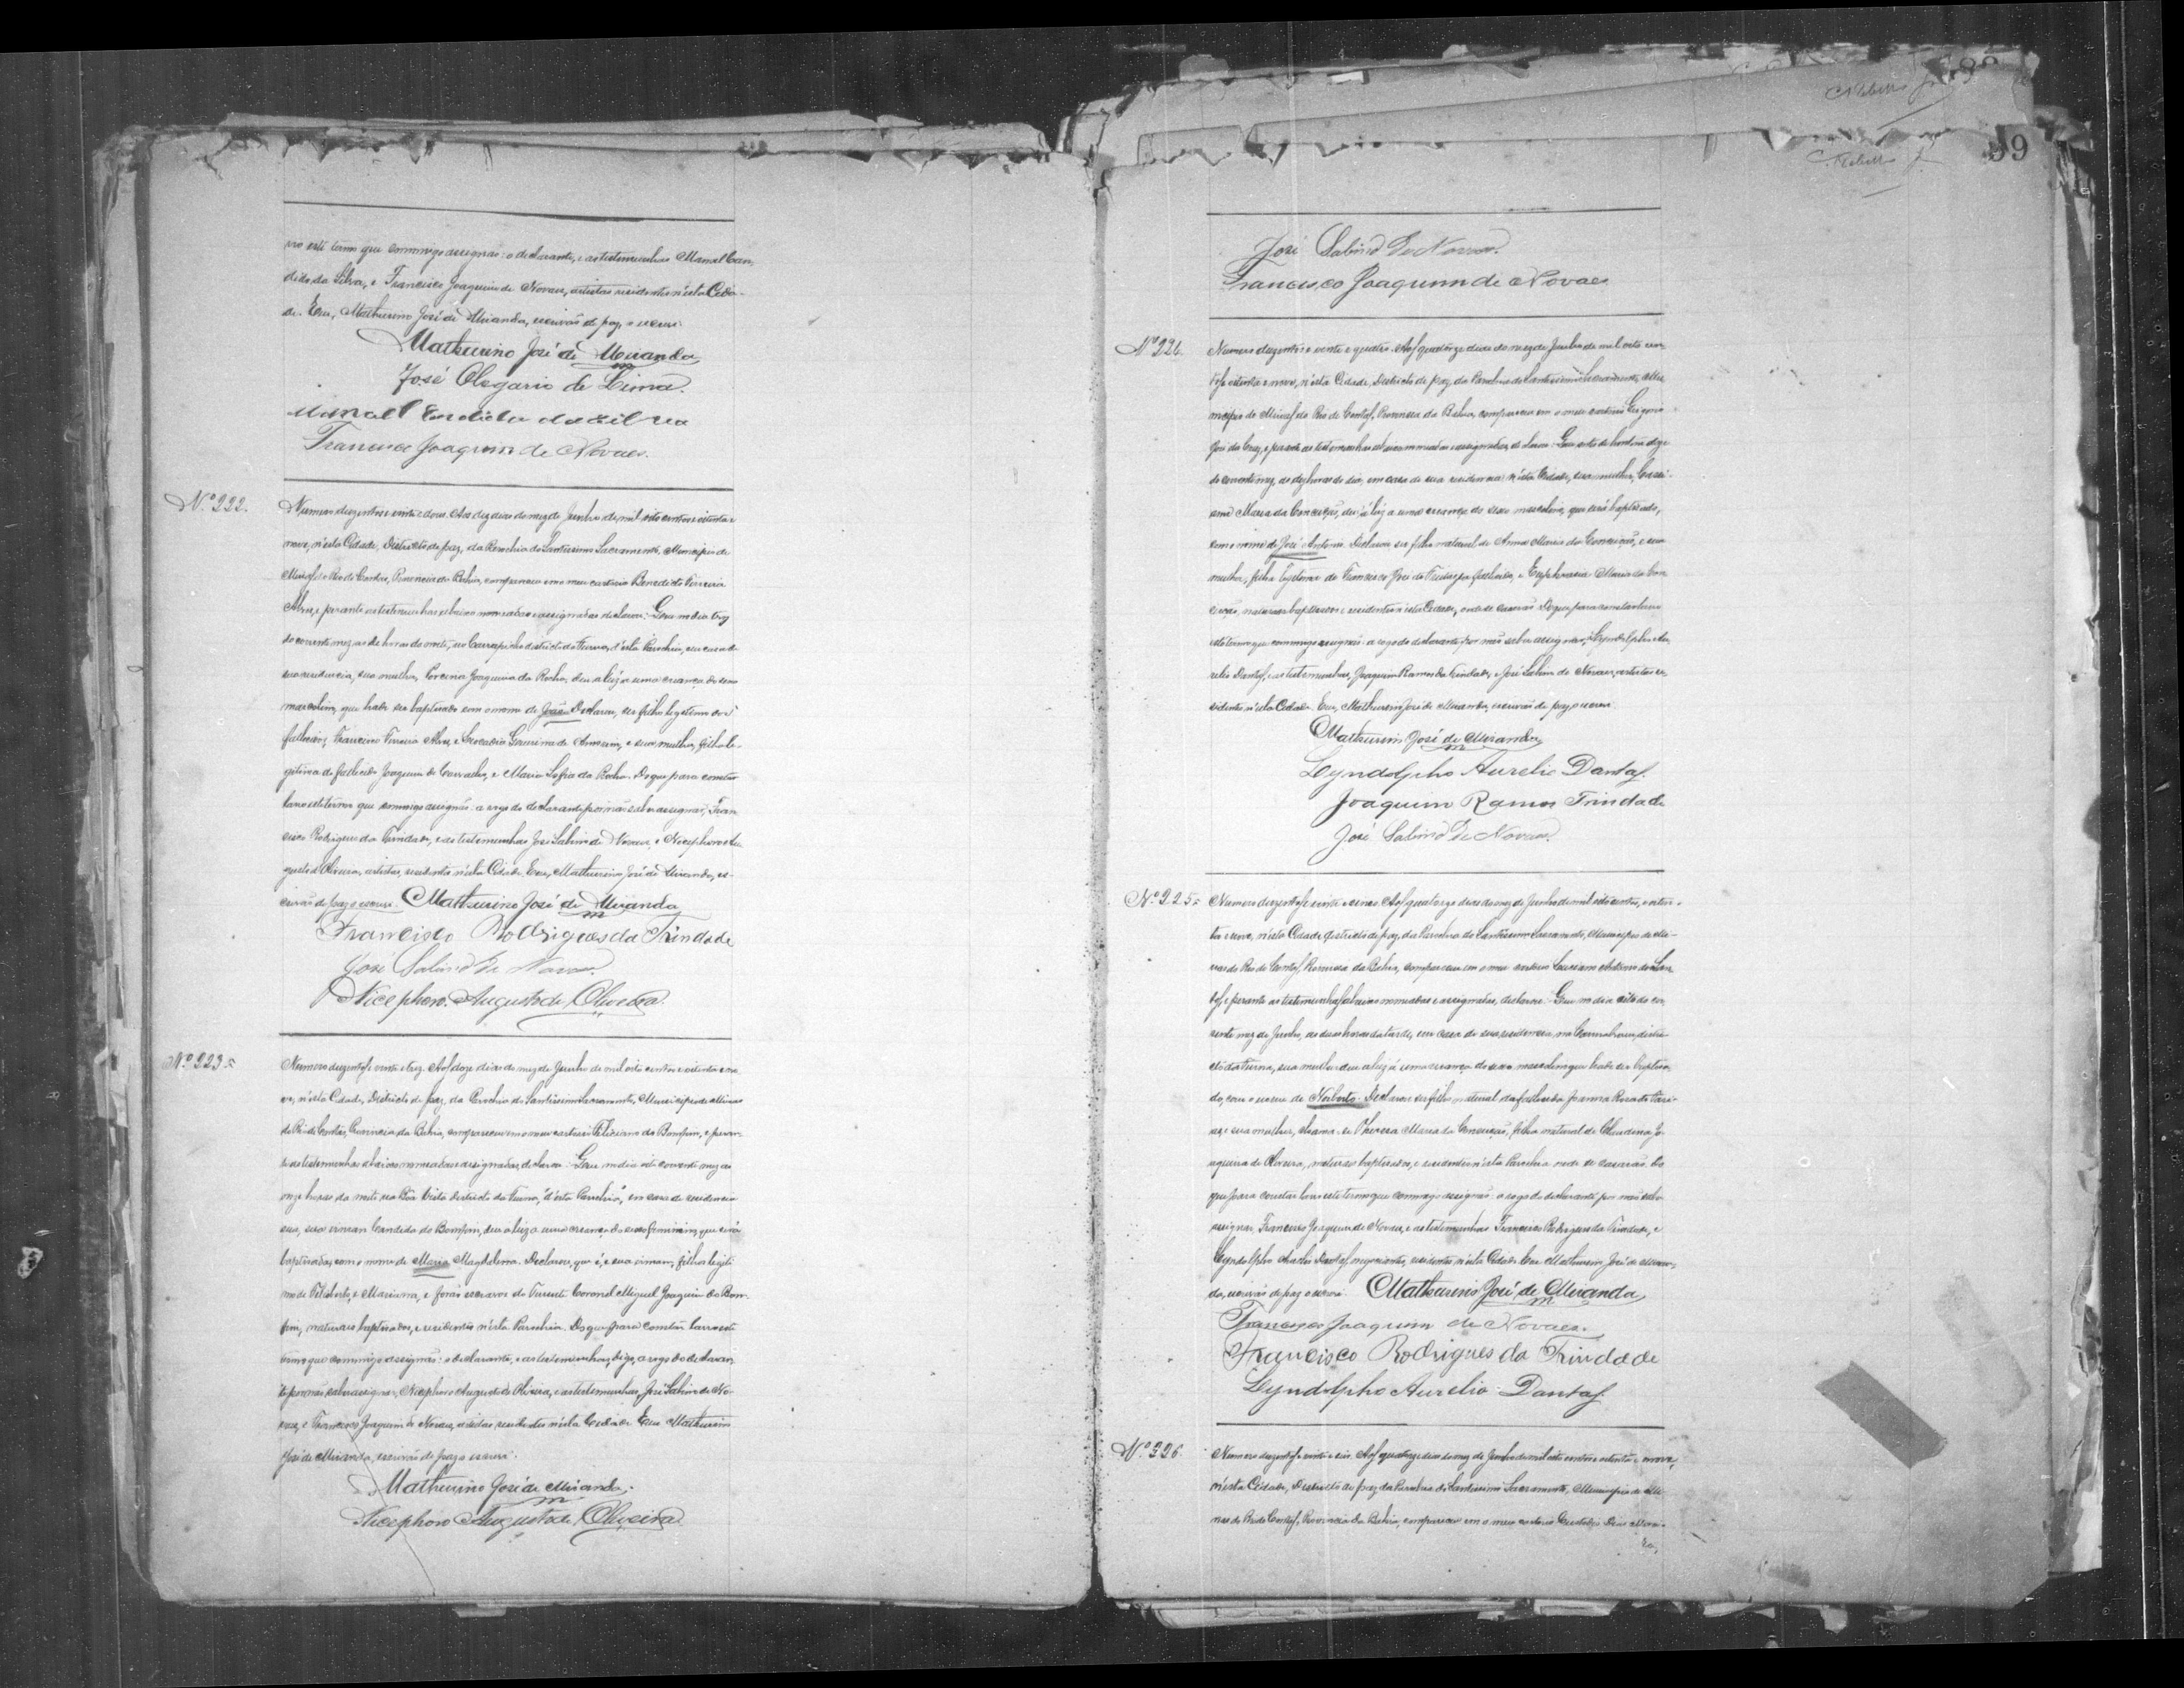 vro este termo que commigo assignão: o declarante, e as testemunhas Manoel Can-
dido da Silva, e Francisco Joaquim de Novaes, artistas residentes n'esta Cida-
de. Eu, Mathurino José de Miranda, escrivão de paz, o escrevi.
Mathurino José de Miranda
José Olegario de Lima
Manoel Candido da Silva
Francisco Joaquim de Novaes.
Nº 222.
Numero duzentos e vinte e dous. Aos dez dias do mez de Junho de mil oito centos e oitenta e
nove, n'esta Cidade, Districto de paz, da Parochia do Santissimo Sacramento, Municipio de
Minas do Rio de Contas, Provincia da Bahia, compareceo em o meu cartorio Benedicto Ferreira
Alves, e perante as testemunhas abaixo nomeadas e assignadas declarou: Que no dia trez
do corrente mez, as horas da noite, no districto do Furna, d'esta Parochia, em casa de
sua residencia, sua mulher, Joaquina da Rocha, deu a luz a uma criança do sexo
masculino, que hade ser baptisado com o nome de João. Declarou, ser filho legitimo dos
fallecidos, Ferreira Alves, e de e sua mulher, filha le-
gitima do fallecido Joaquim de Carvalho, e Maria Sofia da Rocha. Do que para constar
lavro este termo que commigo assignão: a rogo do declarante por não saber assignar, Fran-
cisco Rodrigues da Trindade, e as testemunhas José Sabino de Novaes, e Nicephoro Au-
gusto d'Oliveira, artistas, residentes n'esta Cidade. Eu, Mathurino José de Miranda, es-
crivão de paz o escrevi. Mathurino José de Miranda
Francisco Rodrigues da Trindade
José Sabino de Novaes.
Nicephoro Augusto de Oliveira.
Nº 223=
Numero duzentos e vinte e trez. Aos doze dias do mez de Junho de mil oito centos e oitenta e no-
ve, n'esta Cidade, Districto de paz, da Parochia do Santissimo Sacramento, Municipio de Minas
do Rio de Contas, Provincia da Bahia, compareceu em o meu cartorio Feliciano do Bomfim, e peran-
te as testemunhas abaixo nomeadas e assignadas, declarou: Que no dia oito corrente mez as
onze horas da noite, na Bôa Vista districto da Furna, d'esta Parochia, em casa de residencia
sua, sua irman Candida do Bomfim, deu a luz a uma criança do sexo feminino, que será
baptisada, com o nome de Maria Magdalena. Declarou, que é, e sua irman, filhos legiti-
mos de Felisberto, e Marianna, e forão escravos do Tenente Coronel Miguel Joaquim do Bom-
fim, naturaes, baptisados, e residentes n'esta Parochia. Do que para constar lavro este
termo que commigo assignão: o declarante, e as testemunhas, digo, a rogo do declaran-
te por não saber assignar, Nicephoro Augusto de Oliveira, e as testemunhas, José Sabino de No-
vaes, e Francisco Joaquim de Novaes, artistas, residentes n'esta Cidade. Eu, Mathurino
José de Miranda, escrivão de paz o escrevi.
Mathurino José de Miranda.
Nicephoro Augusto de Oliveira
99
José Sabino de Novaes.
Francisco Joaquim de Novaes
Nº 224.
Numero duzentos e vinte e quatro. Aos quatorze dias do mez de Junho de mil oito cen-
tos e oitenta e nove, n'esta Cidade, Districto de paz, da Parochia do Santissimo Sacramento, Mu-
nicipio de Minas do Rio de Contas, Provincia da Bahia, compareceu em o meu cartorio Gregorio
José da Cruz, e perante as testemunhas abaixo nomeadas e assignadas, declarou: Que
do corrente mez, as dez horas do dia, em casa de sua residencia n'esta Cidade, sua mulher,
Maria da Conceição, deu á luz a uma criança do sexo masculino, que será baptisado,
com o nome de José Antonio. Declarou ser filho natural de Anna Maria da Conceição, e sua
mulher, filha legitima de Francisco José da fallecido, e Euphrasia Maria da Con-
ceição, naturaes baptisados e residentes n'esta Cidade, onde se casarão. Do que para constar lavro
este termo que commigo assignão: a rogo do declarante por não saber assignar, Lyndolpho Au-
relio Dantas, e as testemunhas, Joaquim Ramos da Trindade, e José Sabino de Novaes, artistas re-
sidentes n'esta Cidade. Eu, Mathurino José de Miranda, escrivão de paz o escrevi
Mathurino José de Miranda
Lyndolpho Aurelio Dantas.
Joaquim Ramos Trindade
José Sabino de Novaes.
Nº 225=
Numero duzentos e vinte e cinco. Aos quatorze dias do mez de Junho de mil oito centos, e oiten-
ta e nove, n'esta Cidade, districto de paz, da Parochia do Santissimo Sacramento, Municipio de Mi-
nas do Rio de Contas, Provincia da Bahia, compareceu em o meu cartorio Antonio dos San-
tos, e perante as testemunhas abaixo nomeadas e assignadas, declarou: Que no dia oito do cor-
rente mez de Junho, as duas horas da tarde, em casa de sua residencia, na distri-
cto da Furna, sua mulher deu a luz á uma criança do sexo masculino que hade ser baptisa-
do, com o nome de Norberto. Declarou ser filho natural da fallecida Joanna Rosa de
e sua mulher, chama-se Thereza Maria da Conceição, filha natural de Claudina Jo-
aquina de Oliveira, naturaes baptisados, e residentes n'esta Parochia onde se casarão. Do
que para constar lavro este termo que commigo assignão: a rogo do declarante por não saber
assignar, Francisco Joaquim de Novaes, e as testemunhas Francisco Rodrigues da Trindade, e
Lyndolpho Aurelio Dantas, negociantes, residentes n'esta Cidade. Eu Mathurino José de Miran-
da, escrivão de paz o escrevi. Mathurino José de Miranda
Francisco Joaquim de Novaes.
Francisco Rodrigues da Trindade
Lyndolpho Aurelio Dantas.
Nº 226.
Numero duzentos e vinte e seis. Aos quatorze dias do mez de Junho de mil oito centos e oitenta e nove,
n'esta Cidade, Districto de paz da Parochia do Santissimo Sacramento, Municipio de Mi-
nas do Rio de Contas, Provincia da Bahia, compareceu em o meu cartorio Custodio